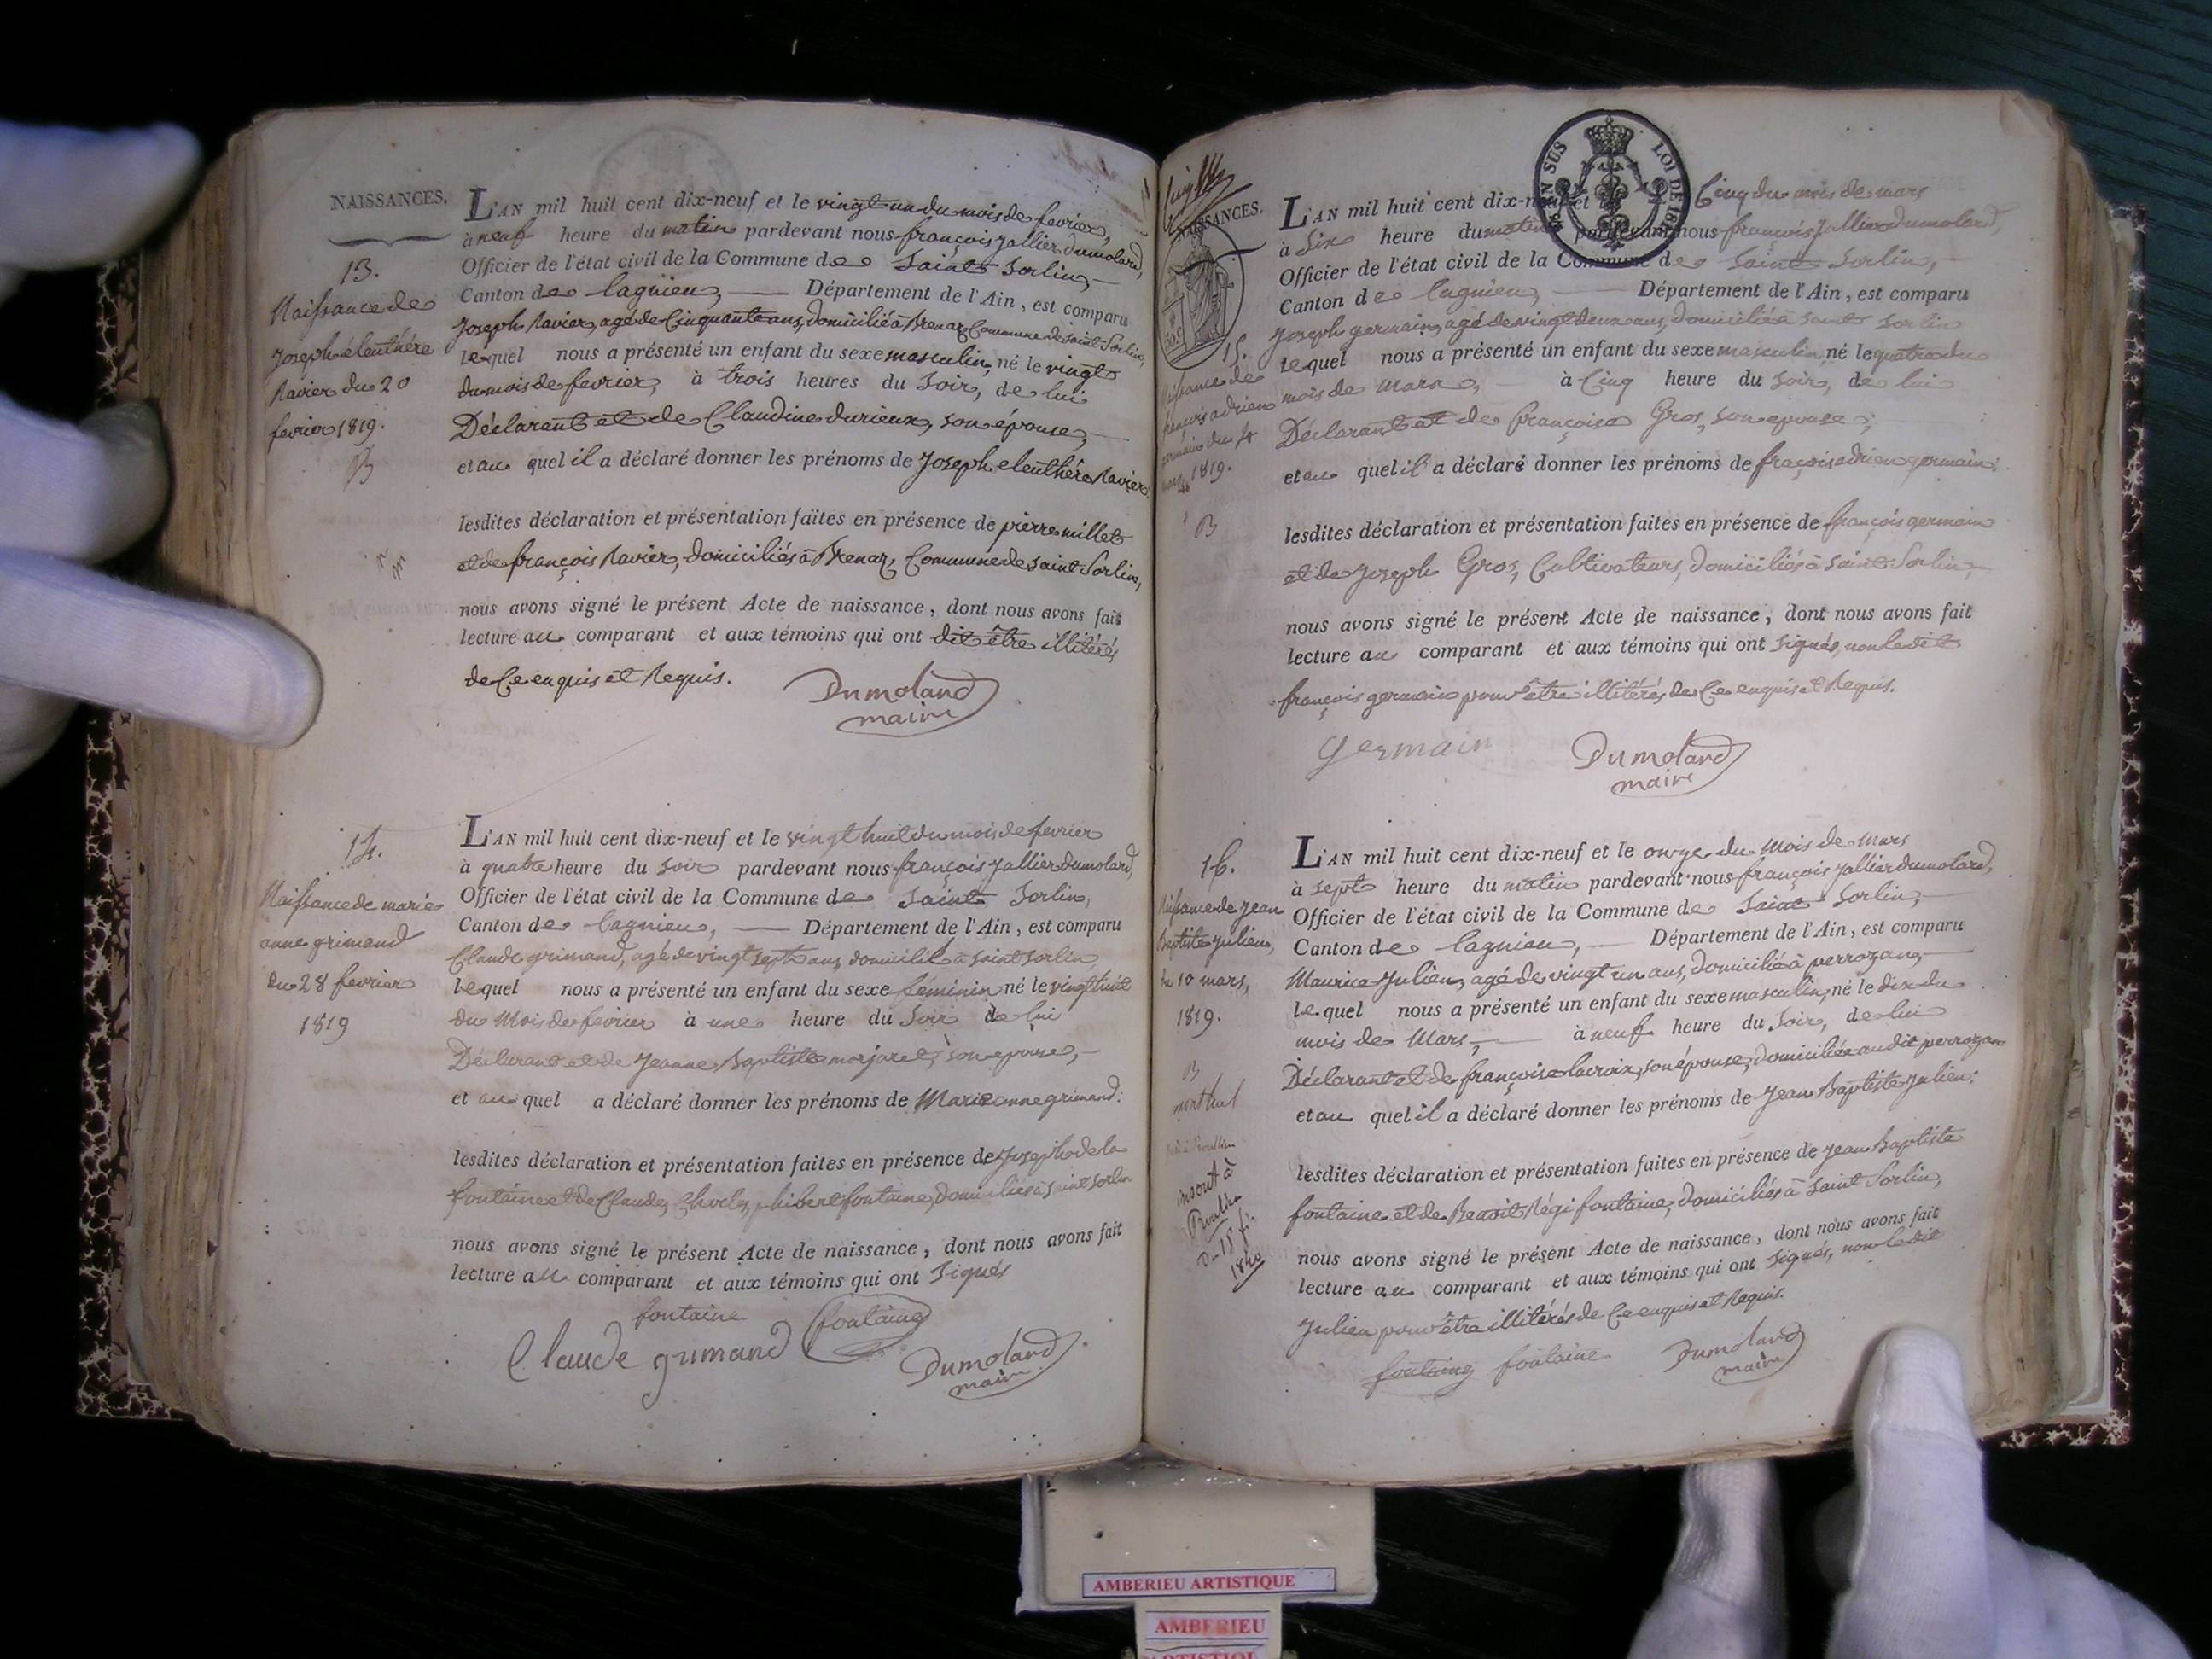 NAISSANCES.
13.
Naissance de
Joseph éleuthére
Ravier du 20
fevrier 1819.
B
L'AN mil huit cent dix-neuf et le vingt un du mois de fevrier,
à neuf heure du matin pardevant nous françois Jallier dumolard,
Officier de l'état civil de la Commune de Saint Sorlin,
Canton de lagnieu, Département de l'Ain, est comparu
Joseph Ravier, agé de Cinquante ans, domicilié à Brenaz Commune de saint Sorlin,
Lequel nous a présenté un enfant du sexe masculin, né le vingt
du mois de fevrier, à trois heures du Soir, de lui
Déclarant et de Claudine durieux, son épouse,
et au quel il a déclaré donner les prénoms de Joseph eleuthére Ravier.
lesdites déclaration et présentation faites en présence de pierre millet
et de françois Ravier, domiciliés à Brenaz, Commune de saint Sorlin,
nous avons signé le présent Acte de naissance, dont nous avons fait
lecture au comparant et aux témoins qui ont dit être illitérés
de Ce enquis et Requis.
Dumolard
maire
14.
Naissance de marie
anne grimand
du 28 fevrier
1819
L'AN mil huit cent dix-neuf et le vingt huit du mois de fevrier
à quatre heure du soir pardevant nous françois Jallier dumolard,
Officier de l'état civil de la Commune de Saint Sorlin,
Canton de lagnieu, Département de l'Ain, est comparu
Claude grimand, agé de vingt sept ans, domicilié à saint Sorlin
Lequel nous a présenté un enfant du sexe féminin né le vingt huit
du Mois de fevrier à une heure du Soir de lui
Déclarant et de Jeanne Baptiste marjaret, son epouse,
et au quel a déclaré donner les prénoms de Marie anne grimand.
lesdites déclaration et présentation faites en présence de Joseph de la
fontaine et de Claude, Charles, phibert fontaine, domiciliés à saint sorlin
nous avons signé le présent Acte de naissance, dont nous avons fait
lecture au comparant et aux témoins qui ont Signés
fontaine fontaine
Claude grimand
Dumolard
maire
NAISSANCES.
15.
Naissance de
françois adrien
germain du 4
mars 1819.
B
SUS LOI DE
L'AN mil huit cent dix-neuf et le Cinq du mois de mars
à Six heure du matin pardevant nous françois Jallier dumolard,
Officier de l'état civil de la Commune de Saint Sorlin,
Canton de lagnieu, Département de l'Ain, est comparu
Joseph germain, agé de vingt deux ans, domicilié à saint Sorlin
Lequel nous a présenté un enfant du sexe masculin, né le quatre du
mois de Mars, à Cinq heure du Soir, de lui
Déclarant et de françoise Gros, son epouse;
et au quel il a déclaré donner les prénoms de fraçois adrien germain.
lesdites déclaration et présentation faites en présence de françois germain
et de Joseph Gros, Cultivateurs, domiciliés à saint Sorlin,
nous avons signé le présent Acte de naissance, dont nous avons fait
lecture au comparant et aux témoins qui ont signés, non ledit
françois germain pour être illitérés de Ce enquis et Requis.
germain
Dumolard
maire
16.
Naissance de Jean
Baptiste Julien,
du 10 mars,
1819.
B
L'AN mil huit cent dix-neuf et le onze du Mois de Mars
à sept heure du matin pardevant nous françois Jallier dumolard,
Officier de l'état civil de la Commune de Saint Sorlin,
Canton de lagnieu, Département de l'Ain, est comparu
Maurice Julien, agé de vingt un ans, domicilié à perrozan,
Lequel nous a présenté un enfant du sexe masculin, né le dix du
mois de Mars, à neuf heure du Soir, de lui
Déclarant et de françoise lacroix, son épouse, domiciliée audit perrozan
et au quel il a déclaré donner les prénoms de Jean Baptiste Julien.
lesdites déclaration et présentation faites en présence de Jean Baptiste
fontaine et de Benoit Régi fontaine, domiciliés à Saint Sorlin,
nous avons signé le présent Acte de naissance, dont nous avons fait
lecture au comparant et aux témoins qui ont signés, non ledit
Julien pour être illitérés de Ce enquis et Requis.
fontaine fontaine
Dumolard
maire
AMBERIEU ARTISTIQUE
AMBERIEU
ARTISTIQUE